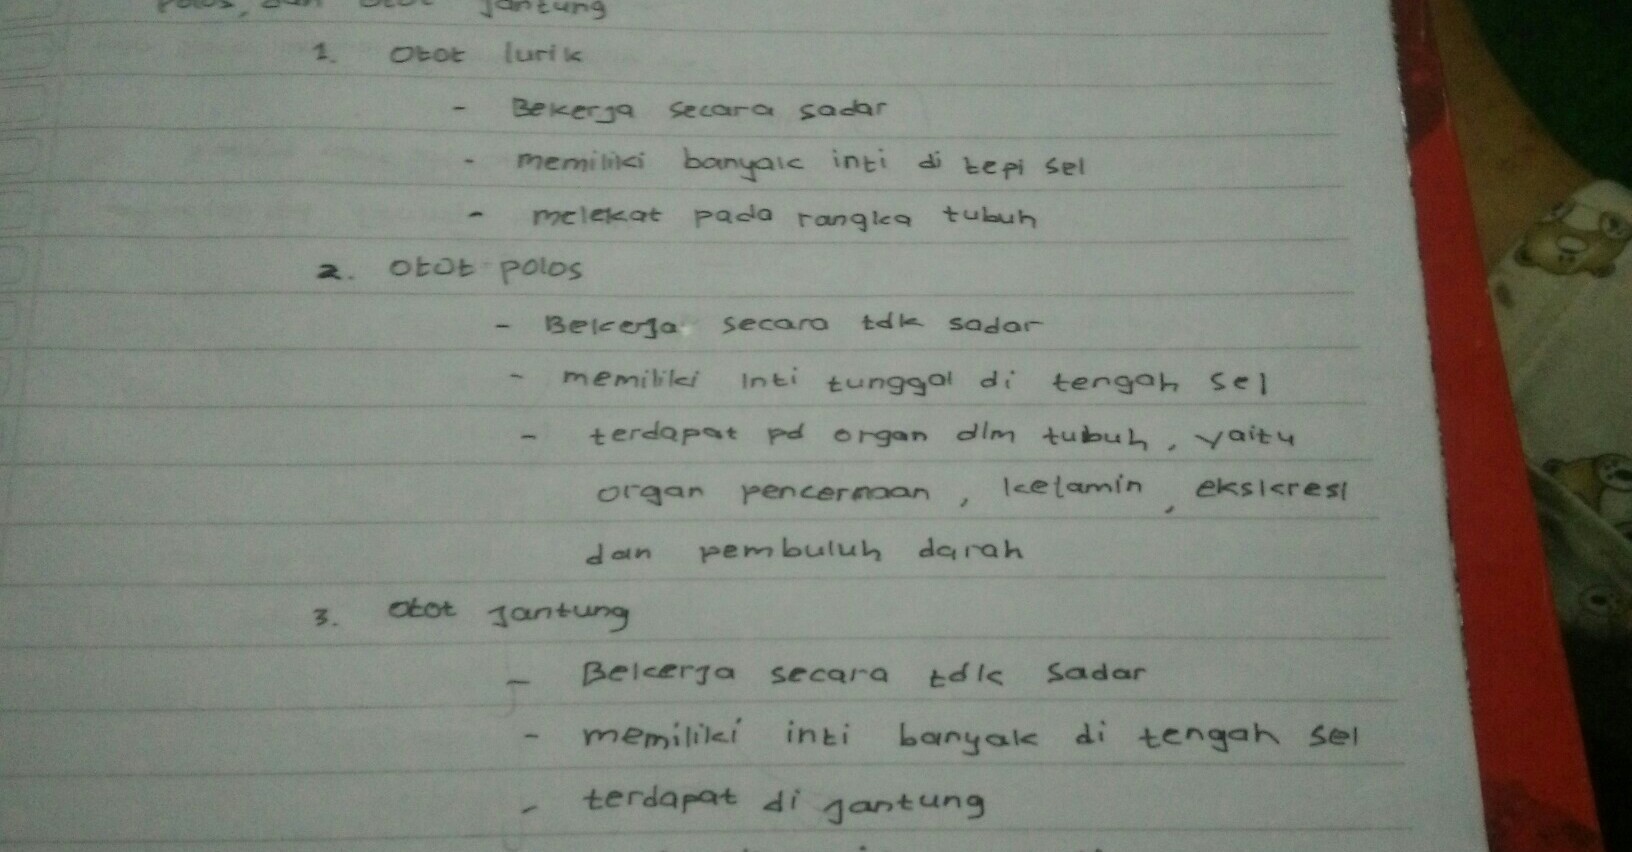 polos, dan otot jantung
1. Otot lurik
- Bekerja secara sadar
- memiliki banyak inti di tepi sel
- melekat pada rangka tubuh
2. Otot polos
- Bekerja secara tdk sadar
- memiliki inti tunggal di tengah sel
- terdapat pd organ dlm tubuh, yaitu
organ pencernaan, kelamin, ekskresi
dan pembuluh darah
3. Otot jantung
- Bekerja secara tdk sadar
- memiliki inti banyak di tengah sel
- terdapat di jantung